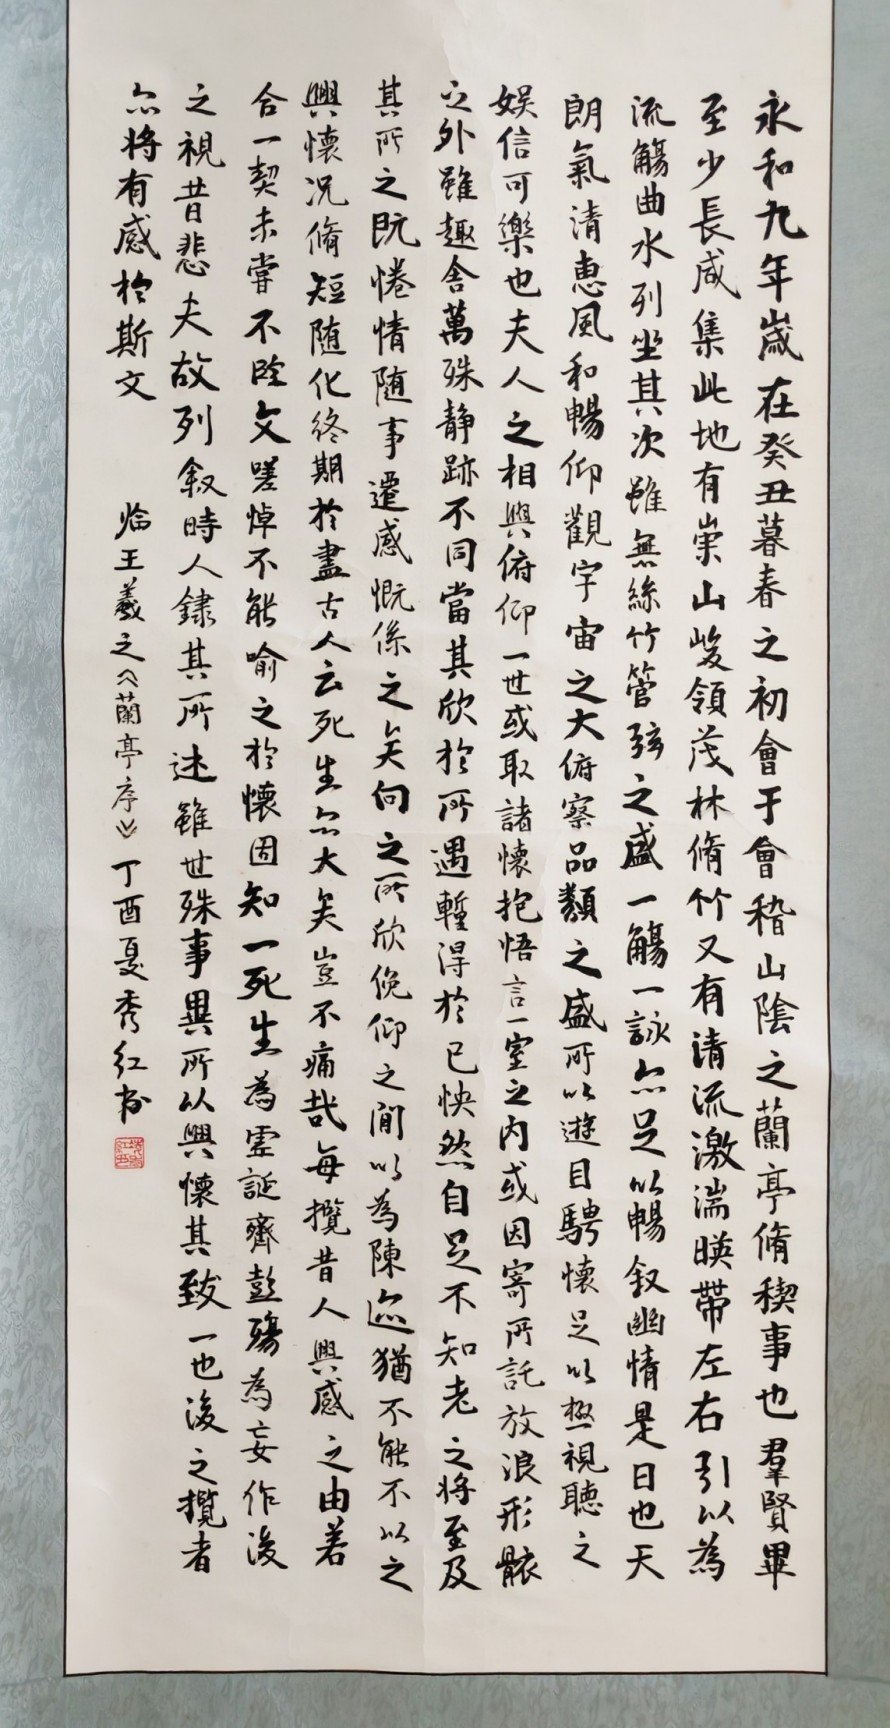 永和九年歲在癸丑暮春之初會于會稽山陰之蘭亭脩稧事也羣賢畢
至少長咸集此地有崇山峻領茂林脩竹又有清流激湍暎帶左右引以為
流觴曲水列坐其次雖無絲竹管弦之盛一觴一詠亦足以暢叙幽情是日也天
朗氣清惠風和暢仰觀宇宙之大俯察品類之盛所以遊目騁懷足以極視聽之
娱信可樂也夫人之相與俯仰一世或取諸懷抱悟言一室之内或因寄所託放浪形骸
之外雖趣舍萬殊静跡不同當其欣於所遇蹔得於己怏然自足不知老之将至及
其所之既惓情随事遷感慨係之矣向之所欣俛仰之閒以為陳迹猶不能不以之
興懷况脩短随化終期於盡古人云死生亦大矣豈不痛哉每攬昔人興感之由若
合一契未嘗不臨文嗟悼不能喻之於懷固知一死生為虚誕齊彭殤為妄作後
之視昔悲夫故列叙時人録其所述雖世殊事異所以興懷其致一也後之攬者
亦将有感於斯文
临王羲之《蘭亭序》丁酉夏秀红书